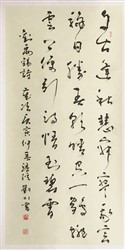 自古逢秋悲寂寥我言
秋日勝春朝晴空一鶴排
雲上便引詩情到碧霄
劉禹錫詩 庚寅仲夏